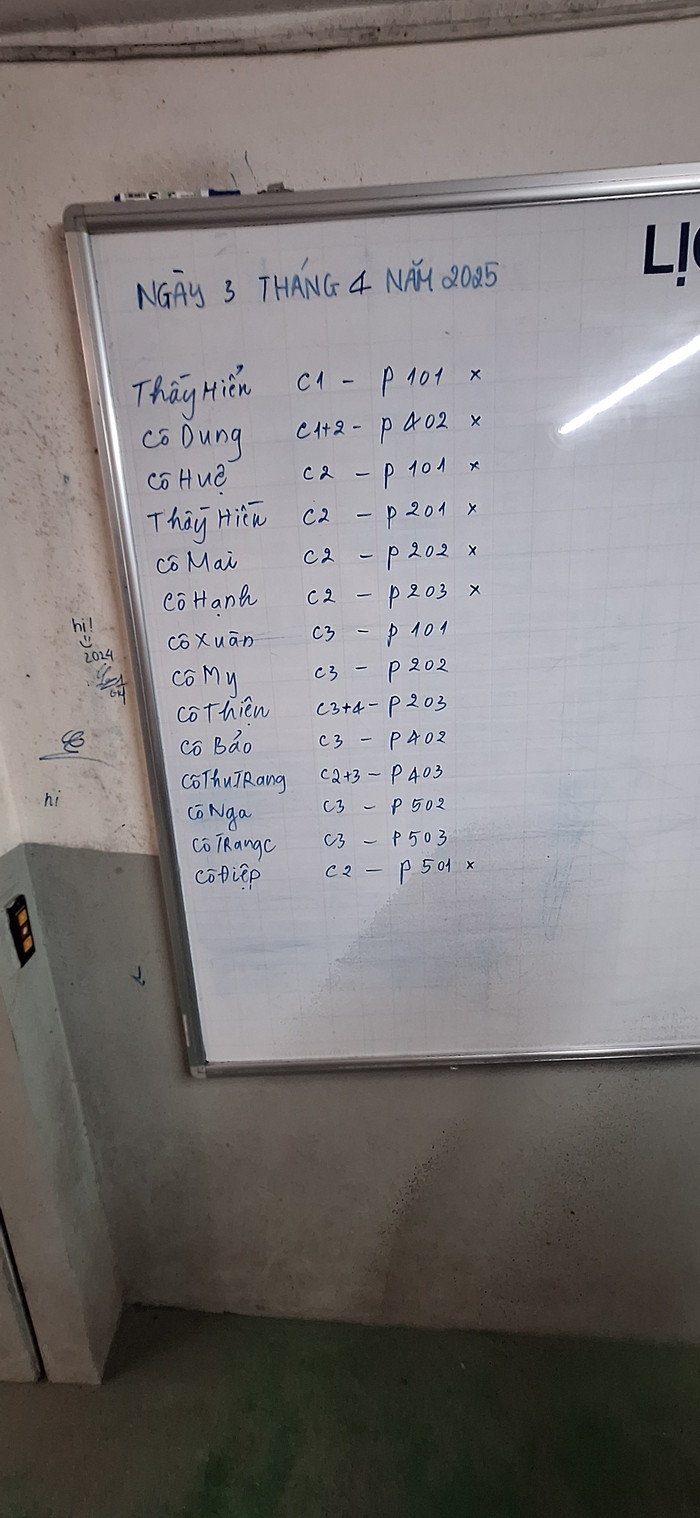 LỊC
NGÀY 3 THÁNG 4 NĂM 2025
Thầy Hiển C1 - P 101 x
Cô Dung C1+2 - P 402 x
Cô Huệ C2 - P 101 x
Thầy Hiền C2 - P 201 x
Cô Mai C2 - P 202 x
Cô Hạnh C2 - P 203 x
Cô Xuân C3 - P 101
Cô My C3 - P 202
Cô Thiện C3+4 - P 203
Cô Bảo C3 - P 402
Cô Thu TRang C2+3 - P 403
Cô Nga C3 - P 502
Cô TRang C C3 - P 503
Cô Điệp C2 - P 501 x
hi!
2024
hi